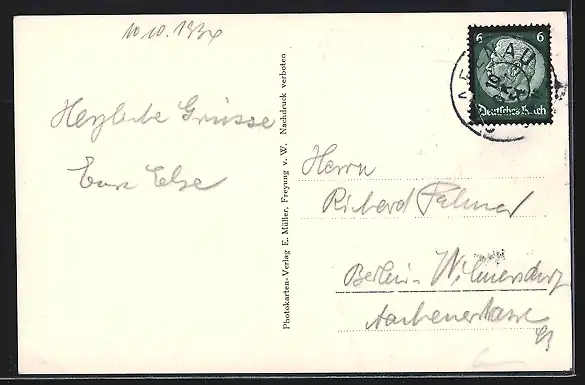 10.10.1934
Herzliche Grüsse
Eure Else
Photokarten-Verlag E. Müller, Freyung v. W. Nachdruck verboten
6 6
Deutsches Reich
Herrn
Richard
Berlin-Wilmersdorf
Aachenerstrasse